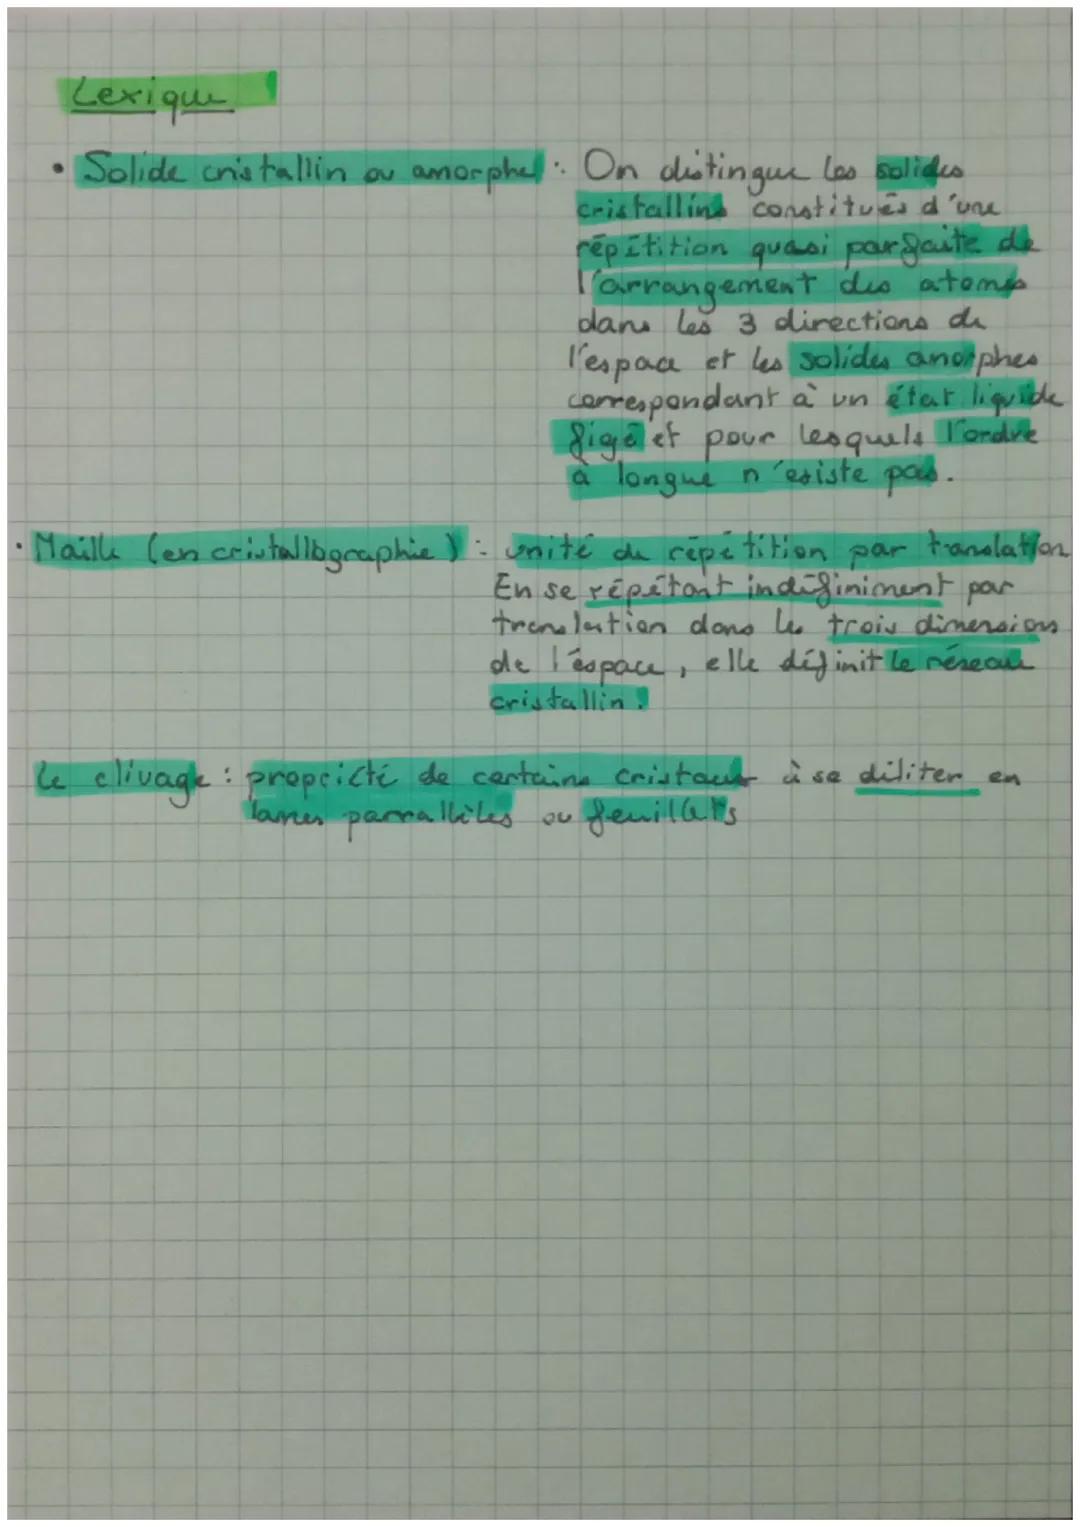 Lexique
• Solide cristallin ou amorphe : On distingue les solides
cristallins constitués d'une
répétition quasi parfaite de
l'arrangement des atomes
dans les 3 directions de
l'espace et les solides amorphes
correspondant à un état liquide
figé et pour lesquels l'ordre
à longue n'existe pas.
• Maille (en cristallographie) : unité de répétition par translation
En se répétant indéfiniment par
translation dans les trois dimensions
de l'espace, elle définit le réseau
cristallin.
Le clivage : propriété de certains cristaux à se déliter en
lames parrallèles ou feuillets